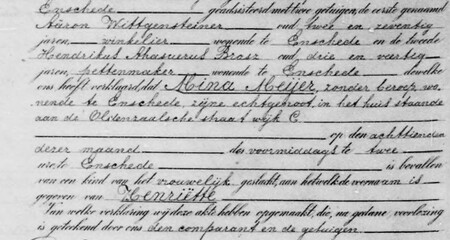 Enschede geadsisteerd met twee getuigen, de eerste genaamd
Aäron Wittgensteiner oud twee en zeventig
jaren, winkelier wonende te Enschede en de tweede
Hendrikus Ahasuerus Brosz oud drie en veertig
jaren, pettenmaker wonende te Enschede dewelke
ons heeft verklaard, dat Mina Meijer, zonder beroep, wo-
nende te Enschede, zijne echtgenoot, in het huis staande
aan de Oldenzaalsche straat wijk C.
op den achttienden
dezer maand des voormiddags te twee
ure, te Enschede is bevallen
van een kind van het vrouwelijk geslacht, aan hetwelk de voornaam is
gegeven van Henriëtte
Van welke verklaring wij deze akte hebben opgemaakt, die, na gedane voorlezing
is geteekend door ons den comparant en de getuigen.